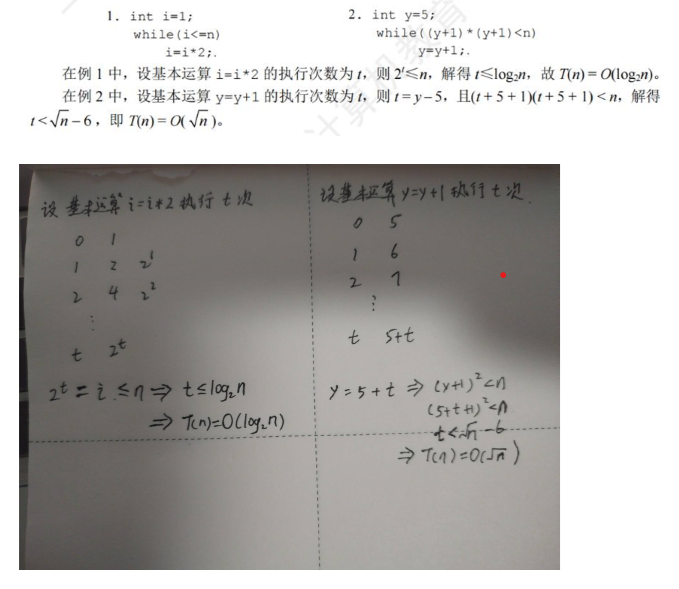 1. int i=1;
while(i<=n)
i=i*2;.
2. int y=5;
while((y+1)*(y+1)<n)
y=y+1;.
在例 1 中，设基本运算 i=i*2 的执行次数为 t，则 2ᵗ≤n，解得 t≤log₂n，故 T(n) = O(log₂n)。
在例 2 中，设基本运算 y=y+1 的执行次数为 t，则 t = y − 5，且(t + 5 + 1)(t + 5 + 1) < n，解得
t < √n − 6，即 T(n) = O(√n)。
计算机教育
设 基本运算 i=i*2 执行 t 次
0 1
1 2 2¹
2 4 2²
⋮
t 2ᵗ
2ᵗ = i ≤ n ⇒ t ≤ log₂n
⇒ T(n)=O(log₂n)
设基本运算 y=y+1 执行 t 次.
0 5
1 6
2 7
⋮
t 5+t
y = 5 + t ⇒ (y+1)²<n
(5+t+1)²<n
t<√n -6
⇒ T(n)=O(√n)